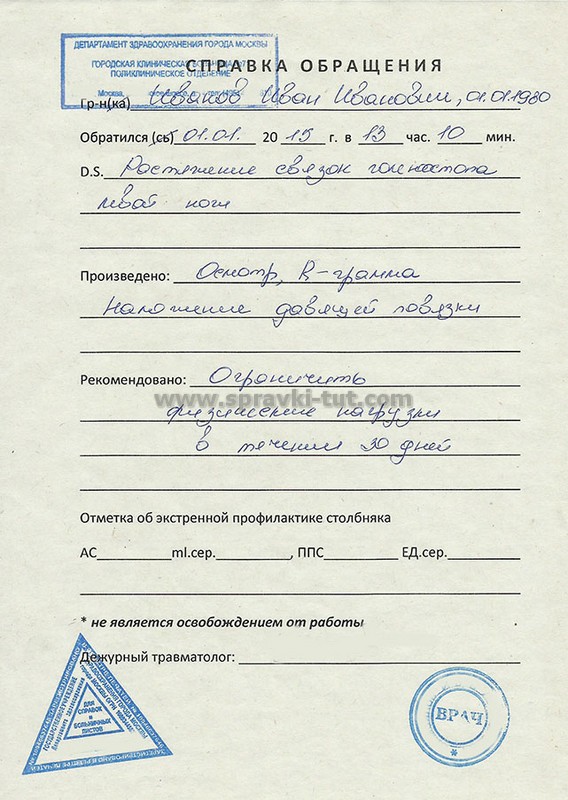 ДЕПАРТАМЕНТ ЗДРАВООХРАНЕНИЯ ГОРОДА МОСКВЫ
ГОРОДСКАЯ КЛИНИЧЕСКАЯ БОЛЬНИЦА
ПОЛИКЛИНИЧЕСКОЕ ОТДЕЛЕНИЕ
Москва,
СПРАВКА ОБРАЩЕНИЯ
Гр-н(ка) Иванов Иван Иванович, 01.01.1980
Обратился (сь) 01.01. 2015 г. в 13 час. 10 мин.
D.S. Растяжение связок голеностопа
левой ноги
Произведено: Осмотр, R-грамма
Наложение давящей повязки
Рекомендовано: Ограничить
www.spravki-tut.com
физические нагрузки
в течении 30 дней
Отметка об экстренной профилактике столбняка
АС ml.сер. , ППС ЕД.сер.
* не является освобождением от работы
Дежурный травматолог:
ДЛЯ
СПРАВОК
и
БОЛЬНИЧНЫХ
ЛИСТОВ
ВРАЧ
*